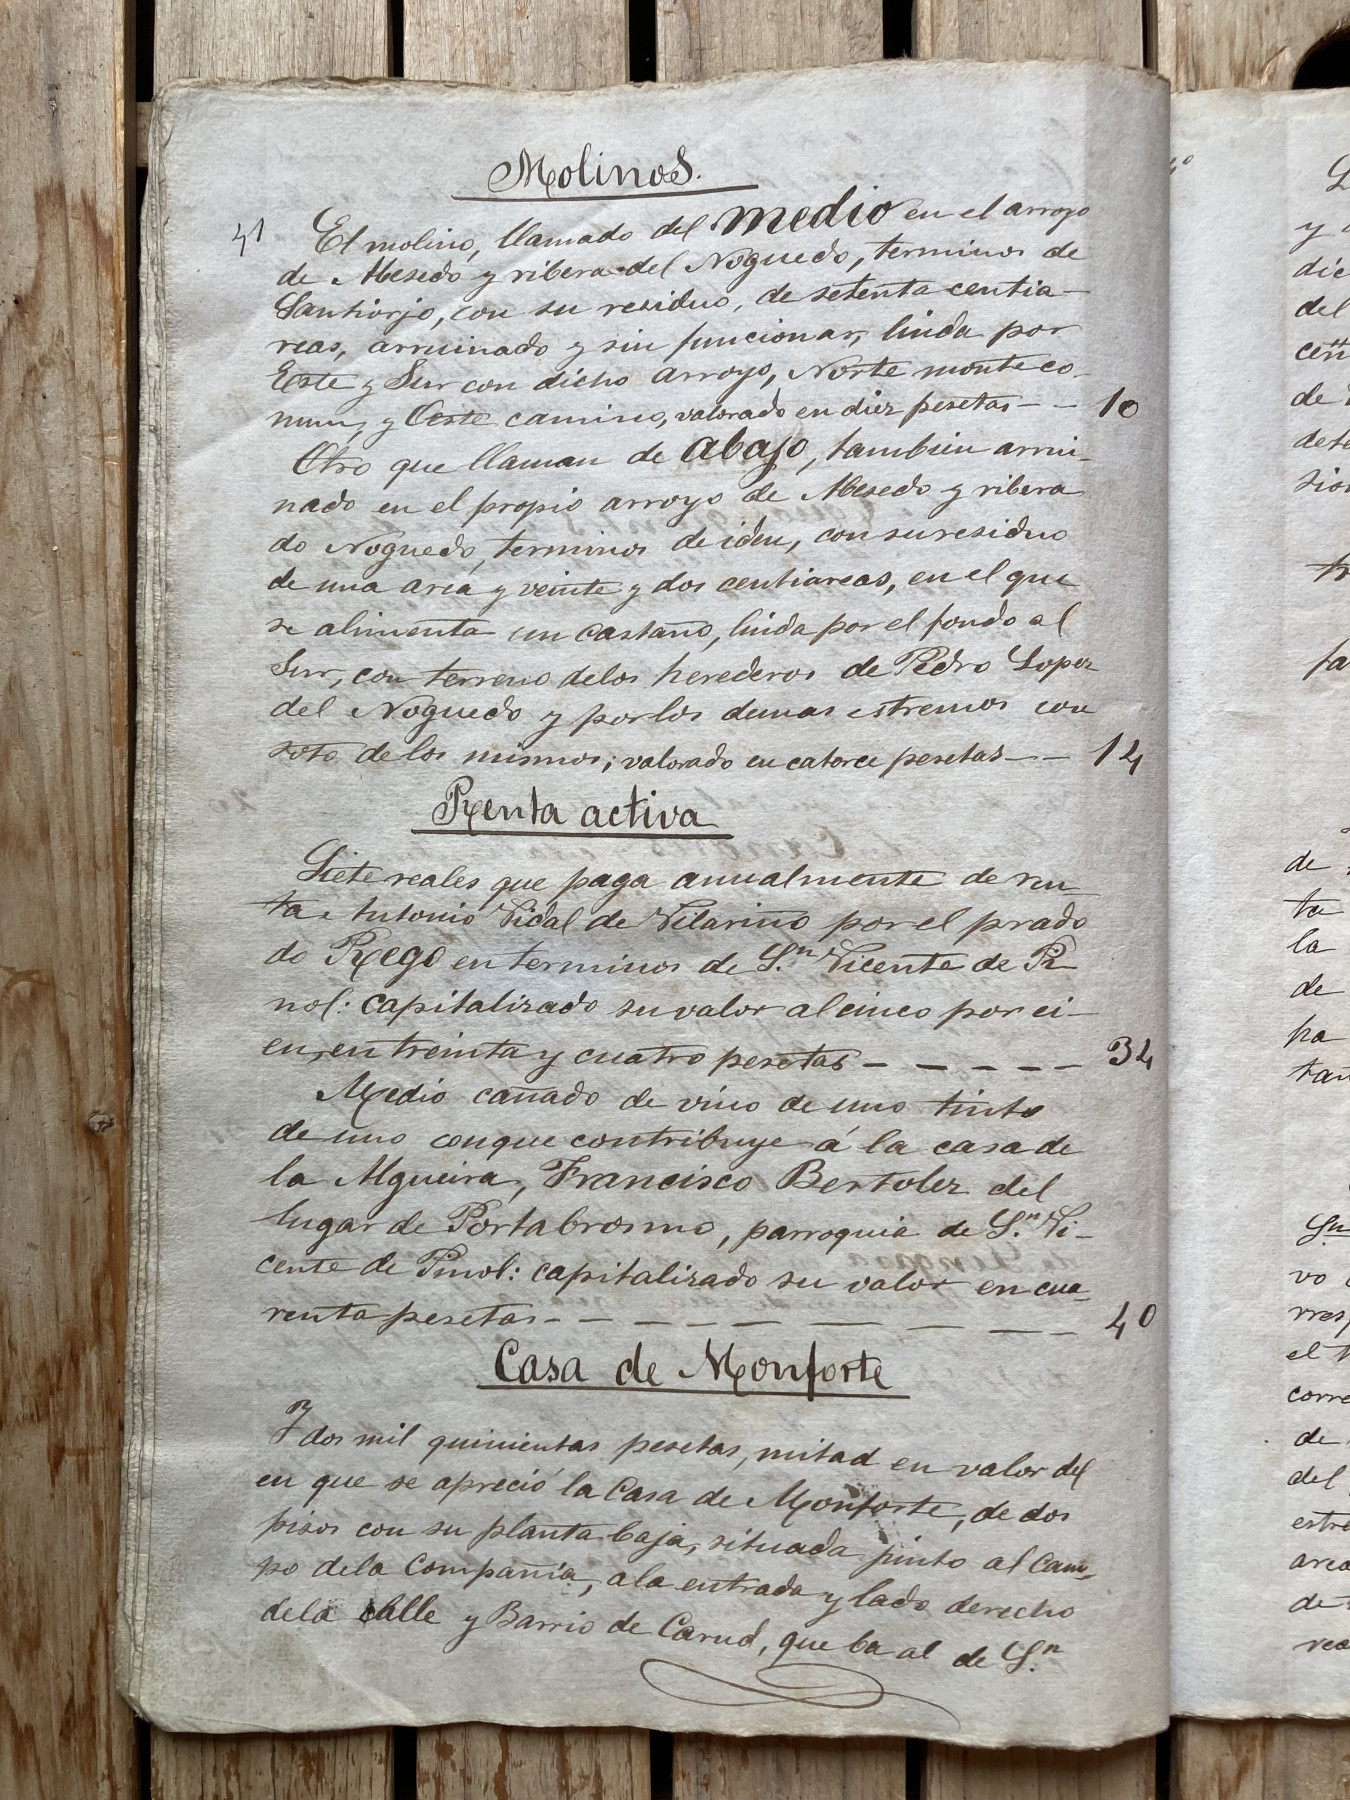 Molinos.
41 El molino, llamado del medio en el arroyo
de Mesedo y ribera del Noguedo, terminos de
Santiorjo, con su residuo, de setenta centia-
reas, arruinado y sin funcionar, linda por
Este y Sur con dicho arroyo, Norte monte co-
mun, y Oeste camino, valorado en diez pesetas - - 10
Otro que llaman de abajo, tambien arrui-
nado en el propio arroyo de Mesedo y ribera
do Noguedo, terminos de idem, con su residuo
de una area y veinte y dos centiareas, en el que
se alimenta un castaño, linda por el fondo al
Sur, con terreno delos herederos de Pedro Lopez
del Noguedo y por los demas estremos con
soto de los mismos; valorado en catorce pesetas - - 14
Renta activa
Siete reales que paga anualmente de ren
ta Antonio Vidal de Vilariño por el prado
do Rego en terminos de S.n Vicente de Pi
nol: capitalizado su valor al cinco por ci-
en, en treinta y cuatro pesetas - - - - - 34
Medio cañado de vino de uno tinto
de uno conque contribuye á la casa de
la Algueira, Francisco Bertolez del
lugar de Portabrosmo, parroquia de S.n Vi-
cente de Pinol: capitalizado su valor en cua-
renta pesetas - - - - - - - - - 40
Casa de Monforte
Y dos mil quinientas pesetas, mitad en valor del
en que se apreció la Casa de Monforte, de dos
pisos con su planta baja, situada junto al Cam-
po dela Compañia, ala entrada y lado derecho
dela calle y Barrio de Carud, que ba al de S.n